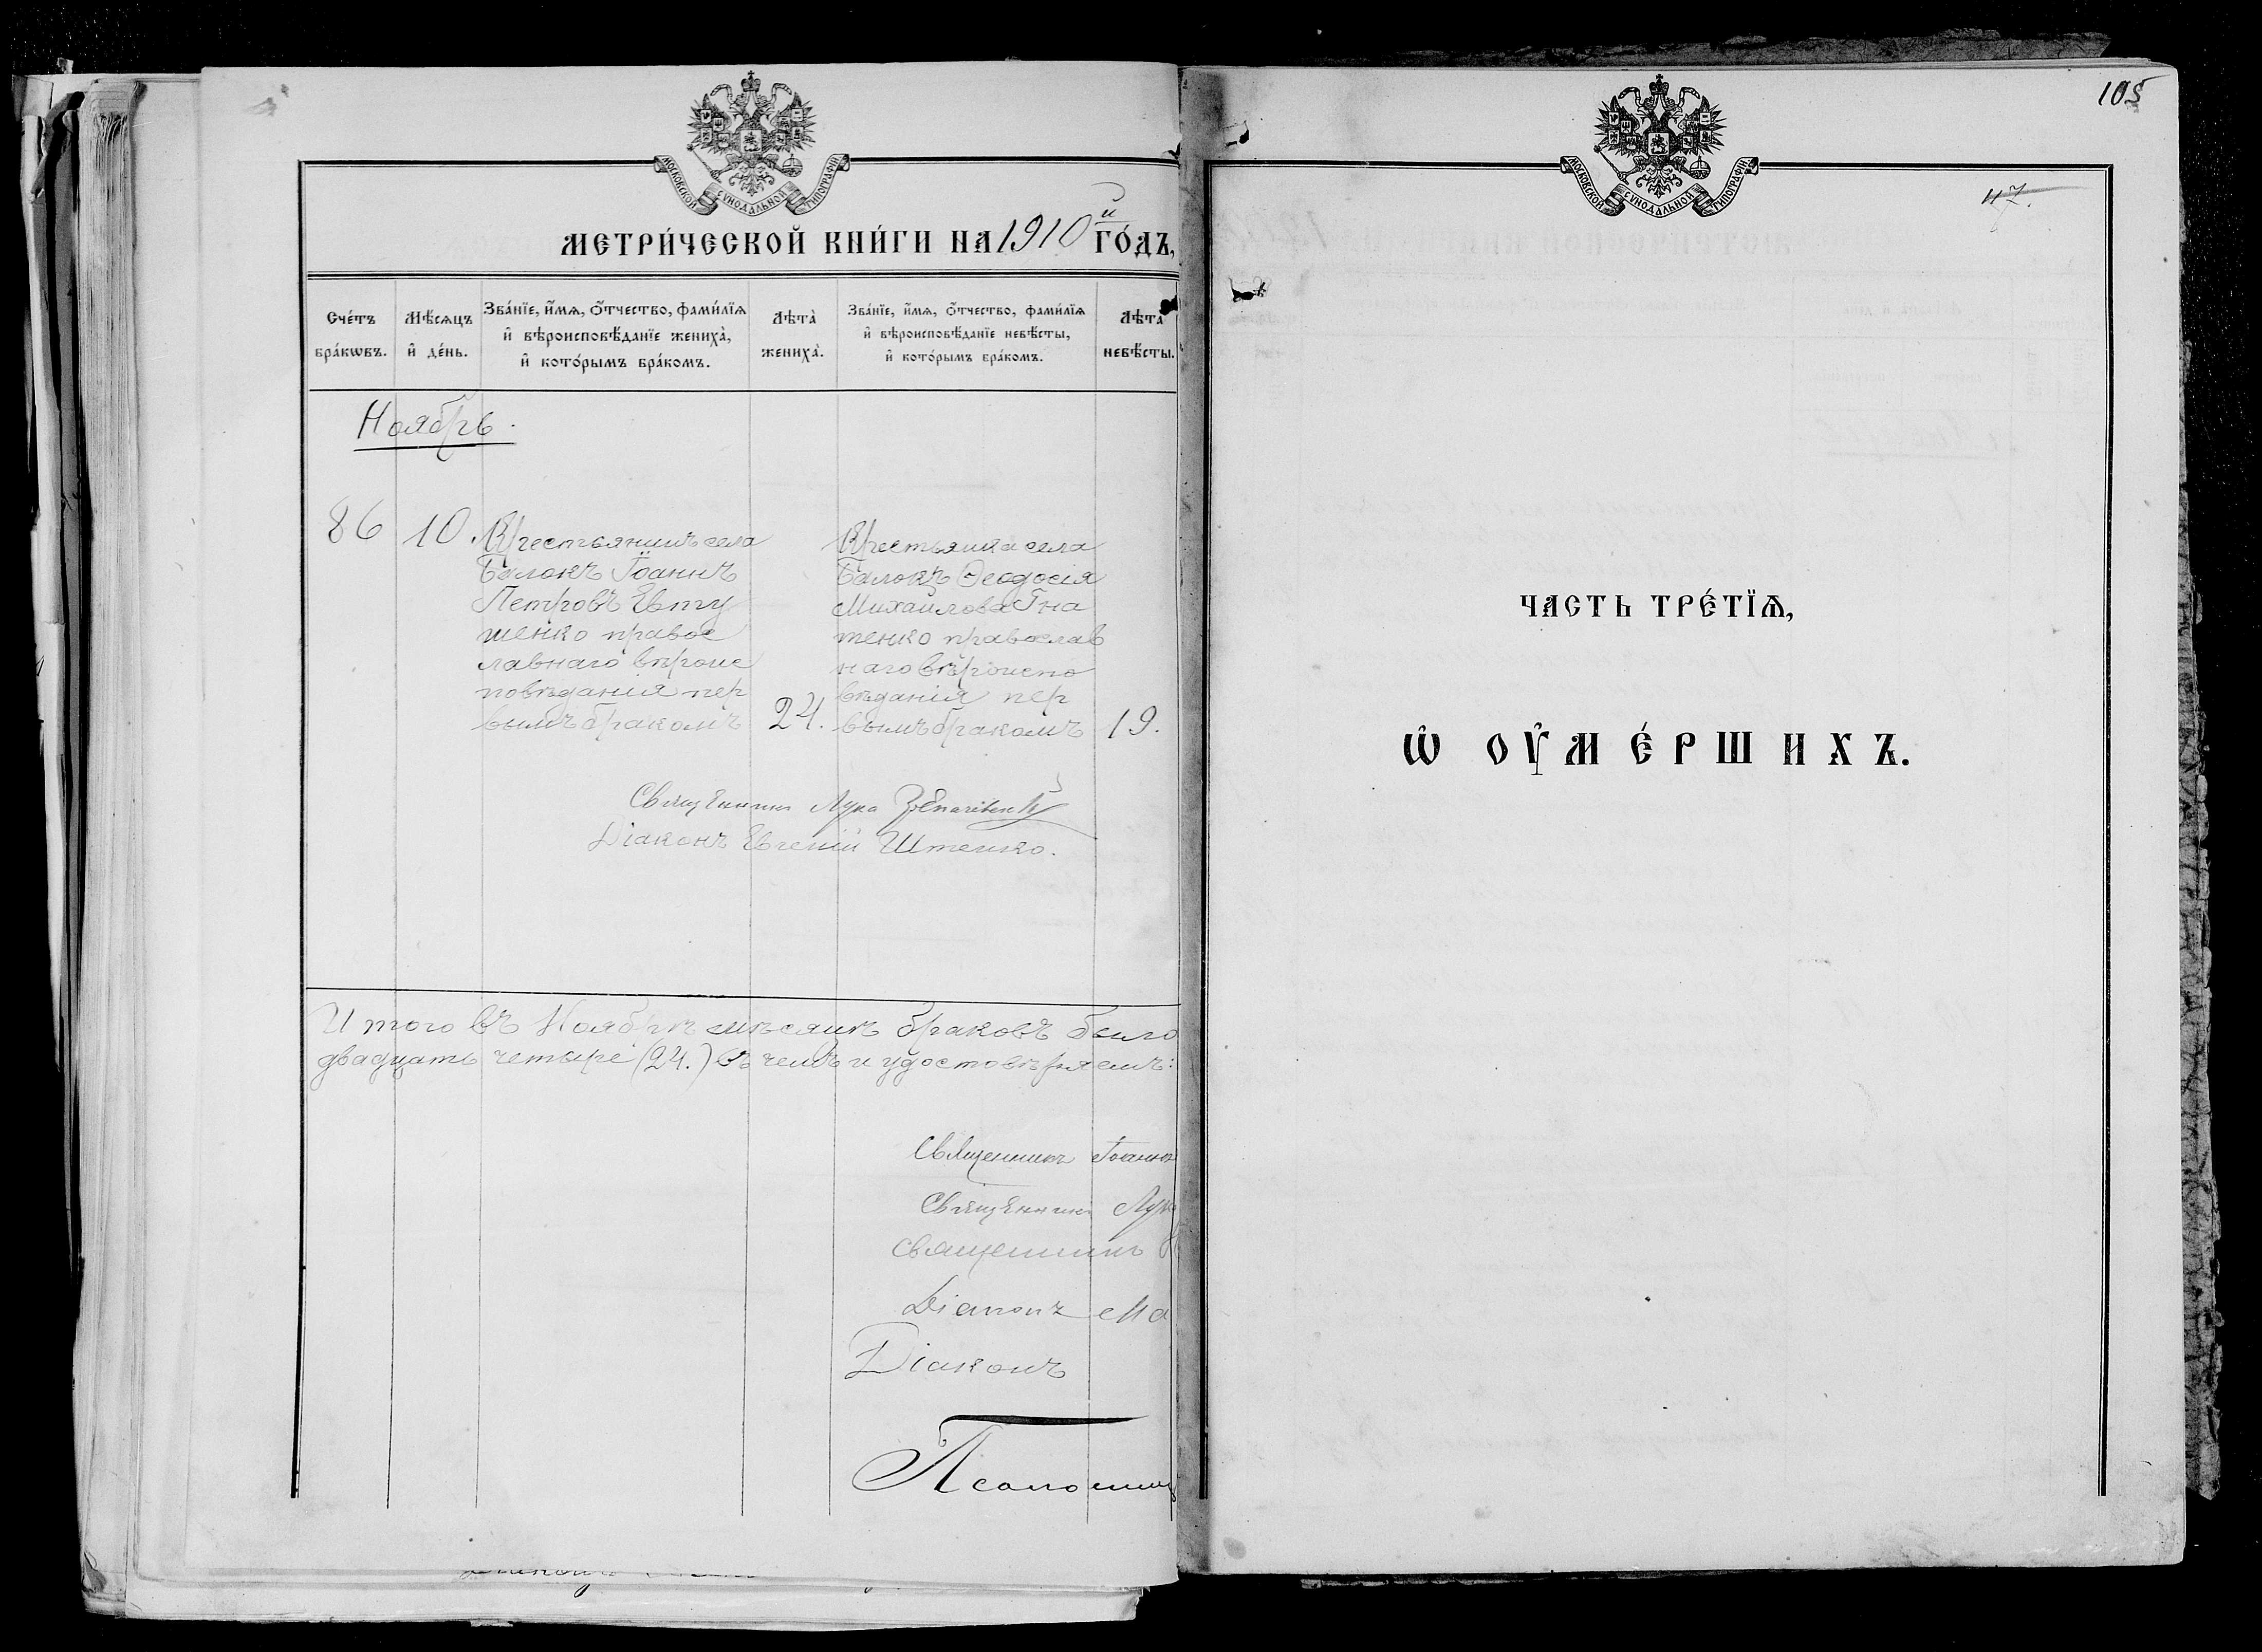 МОСКОВСКОЙ СѴНОДАЛЬНОЙ ТИПОГРАФІИ
МЕТРИ́ЧЕСКОЙ КНИ́ГИ НА 1910й ГО́ДЪ,
Сче́тъ бра́кѡвъ.
Мѣ́сѧцъ и҆ де́нь.
Зва́нїе, и҆́мѧ, ѻ҆́тчество, фами́лїѧ
и҆ вѣроисповѣ́данїе жениха̀,
и҆ кото́рымъ бра́комъ.
Лѣ́та̀ жениха̀.
Зва́нїе, и҆́мѧ, ѻ҆́тчество, фами́лїѧ
и҆ вѣроисповѣ́данїе невѣ́сты,
и҆ кото́рымъ бра́комъ.
Лѣ́та̀ невѣ́сты.
Ноябрь.
86
10.
Крестьянинъ села
Балокъ Іоаннъ
Петровъ Евту
шенко правос
лавнаго вѣроис
повѣданія пер
вымъ бракомъ
24.
Крестьянка села
Балокъ Ѳеодосія
Михайлова Гна
тенко православ
наго вѣроиспо
вѣданія пер
вымъ бракомъ
19.
Священникъ Лука
Діаконъ Евгеній Штенко.
Итого въ Ноябрѣ мѣсяцѣ браковъ было
двадцать четыре (24.) въ чемъ и удостовѣряемъ:
Священникъ Іоаннъ
Священникъ Лука
Священникъ
Діаконъ Ма
Діаконъ
Псаломщ
105
МОСКОВСКОЙ СѴНОДАЛЬНОЙ ТИПОГРАФІИ
117.
ЧАСТЬ ТРЕ́ТЇѦ,
Ѡ҆ ОУ҆МЕ́РШИХЪ.